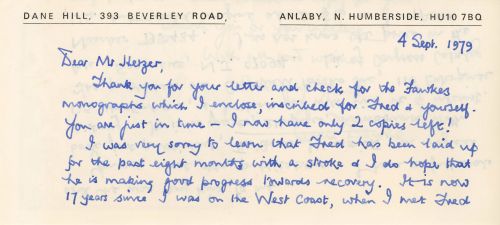 DANE HILL, 393 BEVERLEY ROAD, ANLABY, N. HUMBERSIDE, HU10 7BQ
4 Sept. 1979
Dear Mr Herzer,
Thank you for your letter and check for the Fawkes
monographs which I enclose, inscribed for Fred & yourself.
You are just in time – I now have only 2 copies left!
I was very sorry to learn that Fred has been laid up
for the past eight months with a stroke & I do hope that
he is making good progress towards recovery. It is now
17 years since I was on the West Coast, when I met Fred